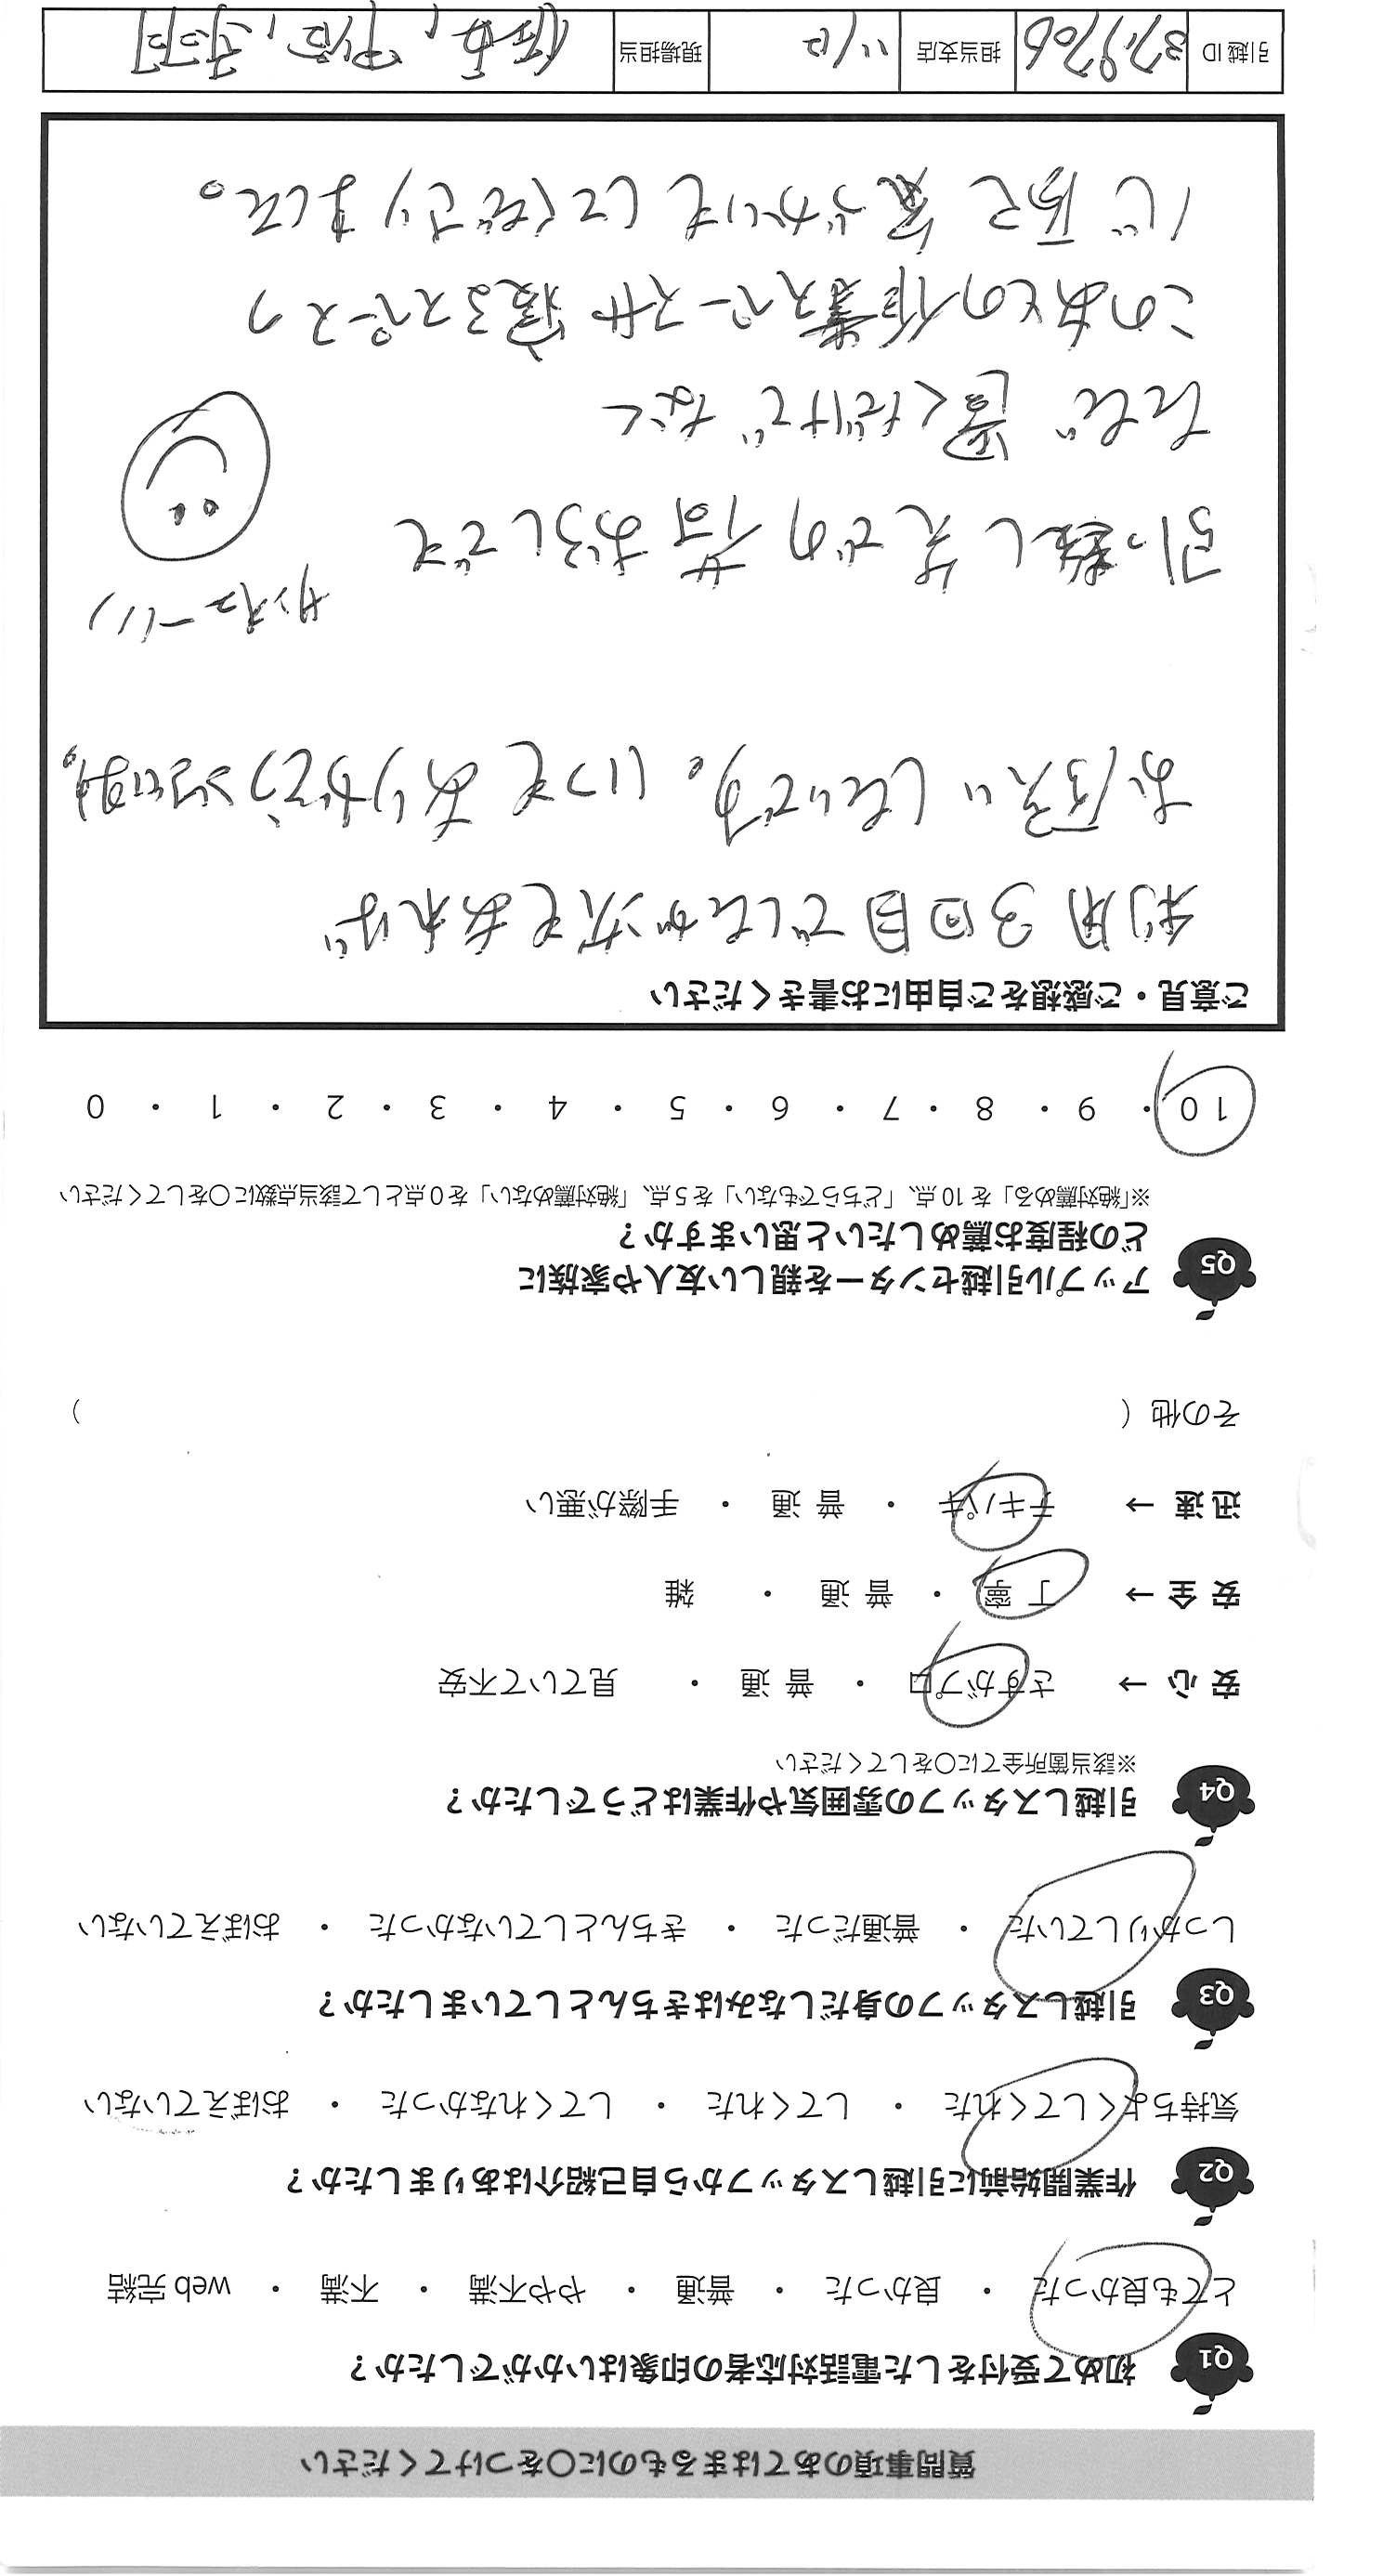 質問事項のあてはまるものに〇をつけてください
Q1 初めて受付をした電話対応者の印象はいかがでしたか？
とても良かった ・ 良かった ・ 普通 ・ やや不満 ・ 不満 ・ web 完結
Q2 作業開始前に引越しスタッフから自己紹介はありましたか？
気持ちよくしてくれた ・ してくれた ・ してくれなかった ・ おぼえていない
Q3 引越しスタッフの身だしなみはきちんとしていましたか？
しっかりしていた ・ 普通だった ・ きちんとしていなかった ・ おぼえていない
Q4 引越しスタッフの雰囲気や作業はどうでしたか？
※該当箇所全てに〇をしてください
安 心 → さすがプロ ・ 普 通 ・ 見ていて不安
安 全 → 丁 寧 ・ 普 通 ・ 雑
迅 速 → テキパキ ・ 普 通 ・ 手際が悪い
その他（ ）
Q5 アップル引越センターを親しい友人や家族に
どの程度お薦めしたいと思いますか？
※「絶対薦める」を 10 点、「どちらでもない」を 5 点、「絶対薦めない」を 0 点として該当点数に〇をしてください
10 ・ 9 ・ 8 ・ 7 ・ 6 ・ 5 ・ 4 ・ 3 ・ 2 ・ 1 ・ 0
ご意見・ご感想をご自由にお書きください
利用3回目でしたが次もあれば
お願いしたいです。いつもありがとうございます。
サンキューー!!
引っ越し先での荷おろしでも
ただ置くだけでなく
このあとの作業スペースや寝るスペースの
心配と気づかいもしてくださりました。
引越 ID 379706 担当支店 現場担当